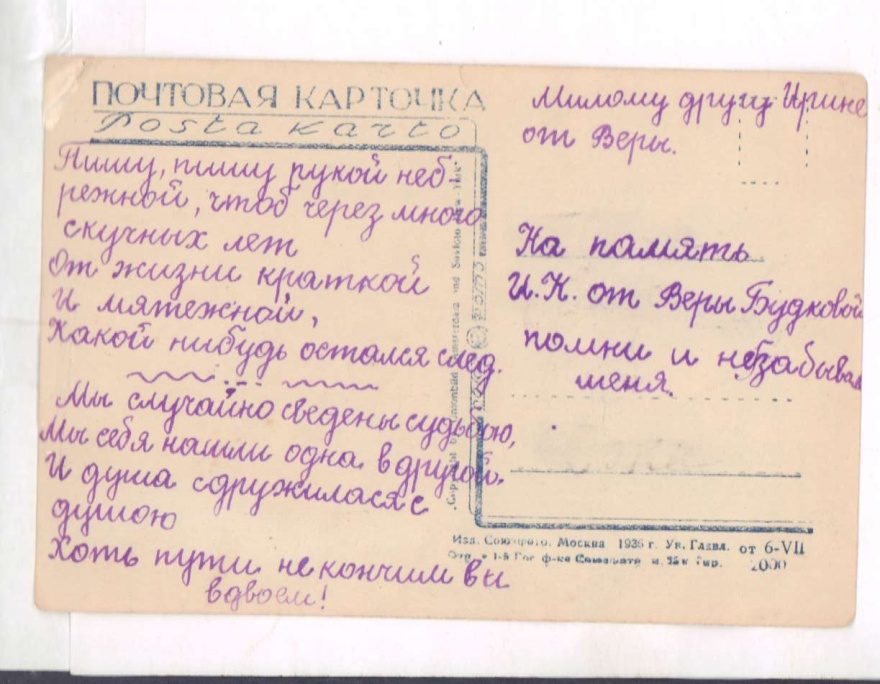 ПОЧТОВАЯ КАРТОЧКА
Posta karto
Пишу, пишу рукой неб
режной, чтоб через много
скучных лет
От жизни краткой
И мятежной,
Какой нибудь остался след.
Мы случайно сведены судьбою,
Мы себя нашли одна в другой.
И душа сдружилася с
душою
Хоть пути не кончим вы
вдвоем!
Милому другу Ирине
от Веры.
На память
И.К. от Веры Будковой
помни и незабывай
меня.
Изд. Союзфото. Москва 1936 г. Ук. Главл. от 6-VII
1-я Гос ф-ка 2000